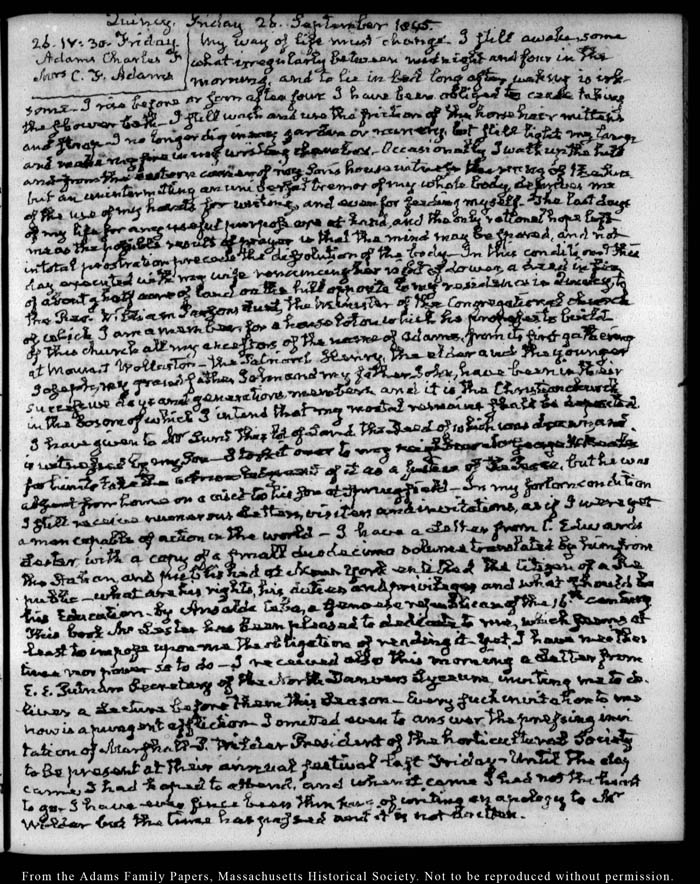 Quincy. Friday 26. September 1845.
26. IV:30. Friday.
Adams Charles F
Mrs C. F. Adams
My way of life must change. I still awake some
what irregularly between midnight and four in the
morning, and to lie in bed long after waking is irk-
some. I rise before or soon after four. I have been obliged to cease taking
the shower bath. I still wash and use the friction of the horse hair mittens
and strap. I no longer dig in my garden or nursery, but still light my lamp
and make my fire in my writing chamber. Occasionally I walk up the hill
and from the eastern corner of my Sons house witness the rising of the Sun
but an unintermitting universal tremor of my whole body, deprives me
of the use of my hands for writing, and even for feeding myself. The last days
of my life for any useful purpose are at hand, and the only rational hope left
me as the possible result of prayer is that the mind may be spared, and not
in total prostration precede the dissolution of the body. In this condition I this
day executed with my wife renouncing her right of dower, a deed in fee,
of about acre of land on the hill opposite to my residence in Quincy, to
the Revd. William Parsons Lunt, the Minister of the Congregational church
of which I am a member, for a house lot on which he proposes to build
Of this church all my ancestors of the name of Adams, from its first gathering
at Mount Wollaston—the Patriarch Henry, the elder and the younger
Joseph, my grandfather John and my father John, have been in their
successive days and generations members, and it is the Christian church
in the bosom of which I intend that my mortal remains shall be deposited.
I have given to Mr Lunt this lot of Land the Deed of which was drawn and
is witnessed by my Son—I to sent it over to my neighbour
for him to take the acknowledgment of it as a Justice of the Peace, but he was
absent from home on a visit to his Son at Springfield—In my forlorn condition
I still receive numerous letters, visitors and invitations, as if I were yet
a man capable of action in the world—I have a Letter from C. Edwards
Lester with a copy of a small duodecimo volume translated by him from
the Italian, and published at New York entitled the Citizen of a Re
public—what are his rights, his duties and privileges and what should be
his Education. By Ansaldo Ceba, a Genoese republican of the 16th century
This book Mr Lester has been pleased to dedicate to me, which seems at
least to impose upon me the obligation of reading it yet I have neither
time nor power so to do—I received also this morning a Letter from
E. E. Putnam Secretary of the North Danvers Lyceum, inviting me to de-
liver a Lecture before them this Season—Every such invitation to me
now is a pungent affliction. I omitted even to answer the pressing invi
tation of Marshall P. Wilder President of the horticultural Society
to be present at their annual festival last Friday—Until the day
came I had hoped to attend, and when it came I had not the heart
to go. I have ever since been thinking of writing an apology to Mr
Wilder but the time has passed and it is not done.
From the Adams Family Papers, Massachusetts Historical Society. Not to be reproduced without permission.